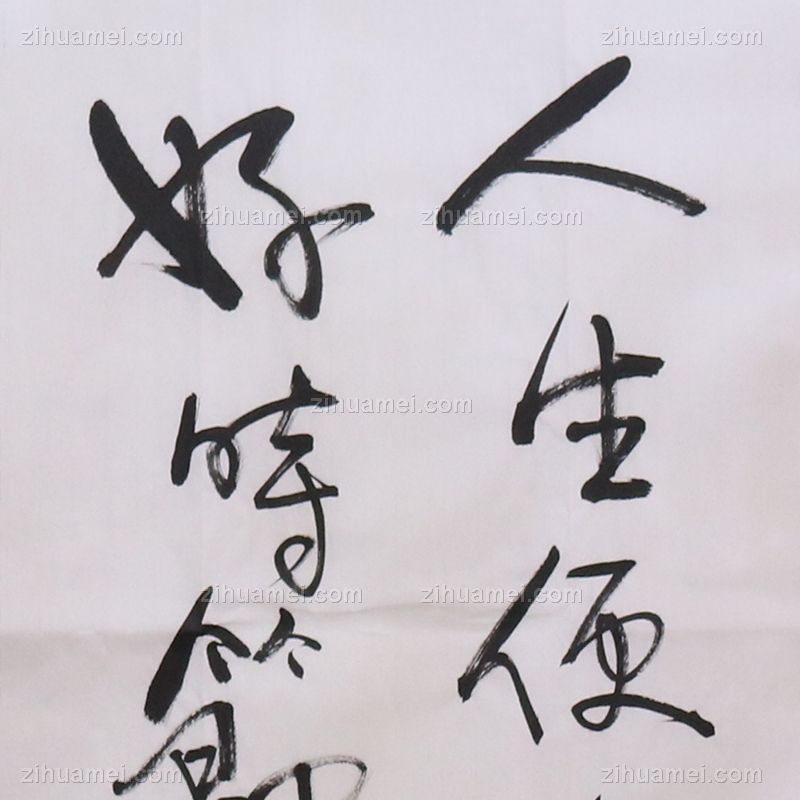 人生便
好時節
zihuamei.com zihuamei.com
zihuamei.com zihuamei.com
zihuamei.com
zihuamei.com zihuamei.com
zihuamei.com zihuamei.com